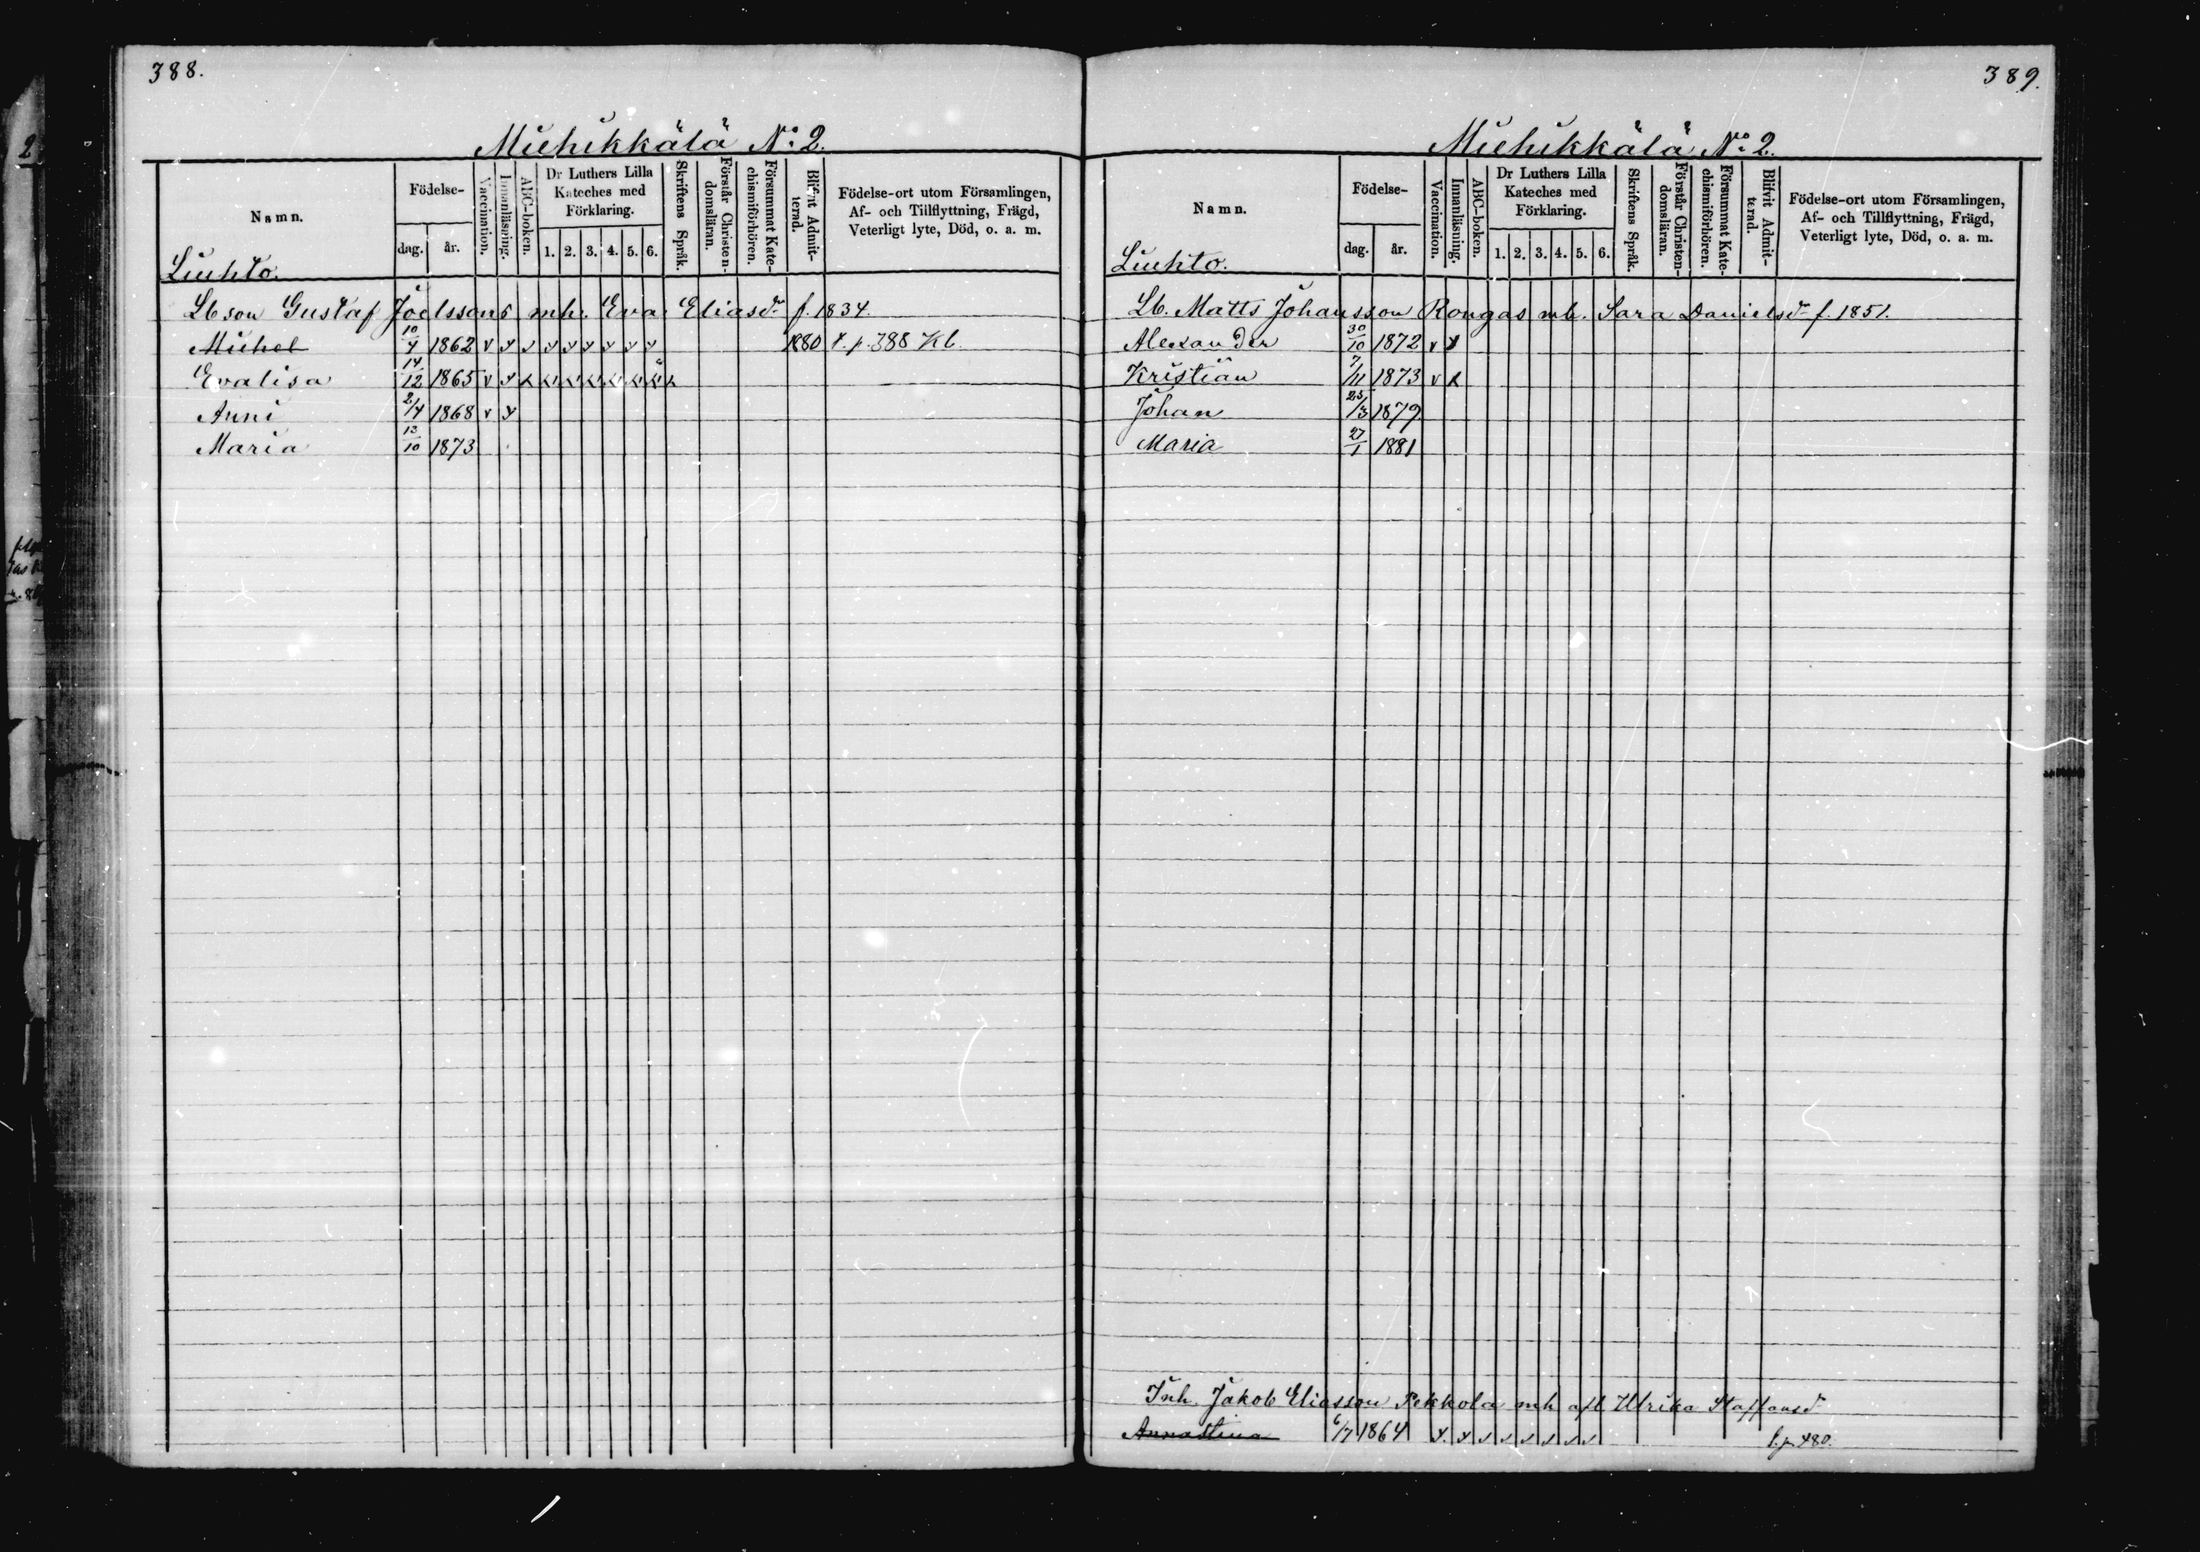 388.
Miehikkälä No 2.
Namn.
Födelse-
dag. år.
Vaccination.
Innanläsning.
ABC-boken.
Dr Luthers Lilla
Kateches med
Förklaring.
1. 2. 3. 4. 5. 6.
Skriftens Språk.
Förstår Christen-
domsläran.
Försummat Kate-
chismiförhören.
Blifvit Admit-
terad.
Födelse-ort utom Församlingen,
Af- och Tillflyttning, Frägd,
Veterligt lyte, Död, o. a. m.
Luhto.
Lb son Gustaf Joelssons mh. Eva Eliasdr f. 1834.
Michel 10/4 1862 v x v v v v v v v 1880 t. p. 388 Kb
Evalisa 14/12 1865 v x
Anni 2/4 1868 v x
Maria 13/10 1873
389.
Miehikkälä No 2.
Namn.
Födelse-
dag. år.
Vaccination.
Innanläsning.
ABC-boken.
Dr Luthers Lilla
Kateches med
Förklaring.
1. 2. 3. 4. 5. 6.
Skriftens Språk.
Förstår Christen-
domsläran.
Försummat Kate-
chismiförhören.
Blifvit Admit-
terad.
Födelse-ort utom Församlingen,
Af- och Tillflyttning, Frägd,
Veterligt lyte, Död, o. a. m.
Luhto.
Lb. Matts Johansson Rongas mh. Sara Danielsdr f. 1851.
Alexander 30/10 1872 v x
Kristian 7/11 1873 v
Johan 25/3 1879
Maria 27/1 1881
Inh. Jakob Eliasson Pekkola mh afl Ulrika Staffansd
Annastina 6/7 1864 x x v v v v v v p. 480.